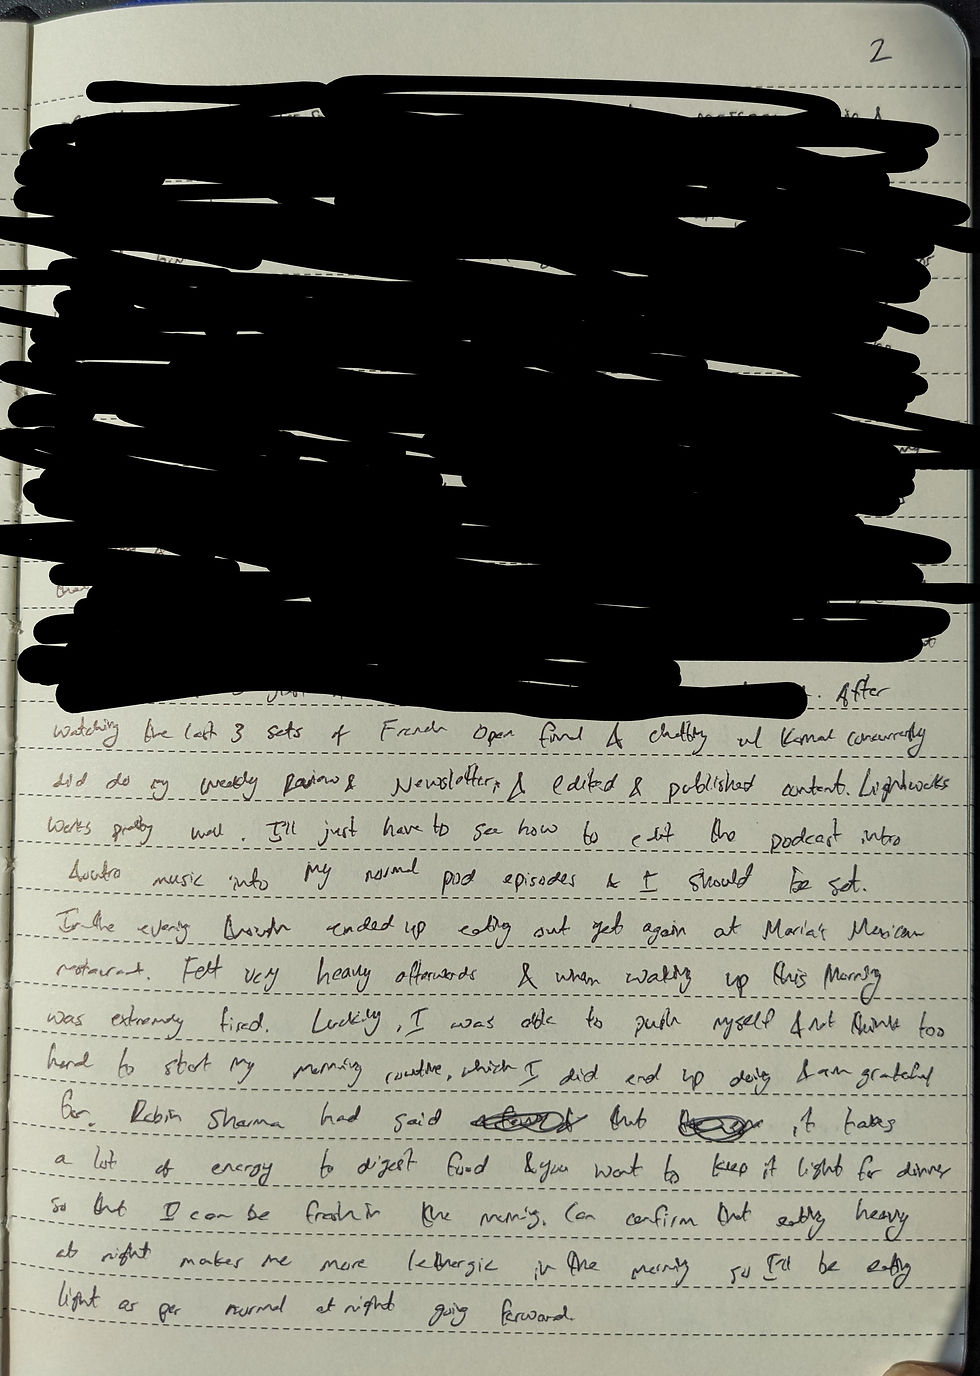 2
. After
watching the last 3 sets of French Open final & chatting w/ Kamal concurrently
did do my weekly Reviews & Newsletter, & edited & published content. Lightworks
works pretty well. I'll just have to see how to edit the podcast intro
& outro music into my normal pod episodes & I should be set.
In the evening though ended up eating out yet again at Maria's Mexican
restaurant. Felt very heavy afterwards & when waking up this Morning
was extremely tired. Luckily, I was able to push myself & not think too
hard to start my morning routine, which I did end up doing & am grateful
for. Robin Sharma had said that it takes
a lot of energy to digest food & you want to keep it light for dinner
so that I can be fresh in the morning. Can confirm that eating heavy
at night makes me more lethergic in the morning so I'll be eating
light as per normal at night going forward.